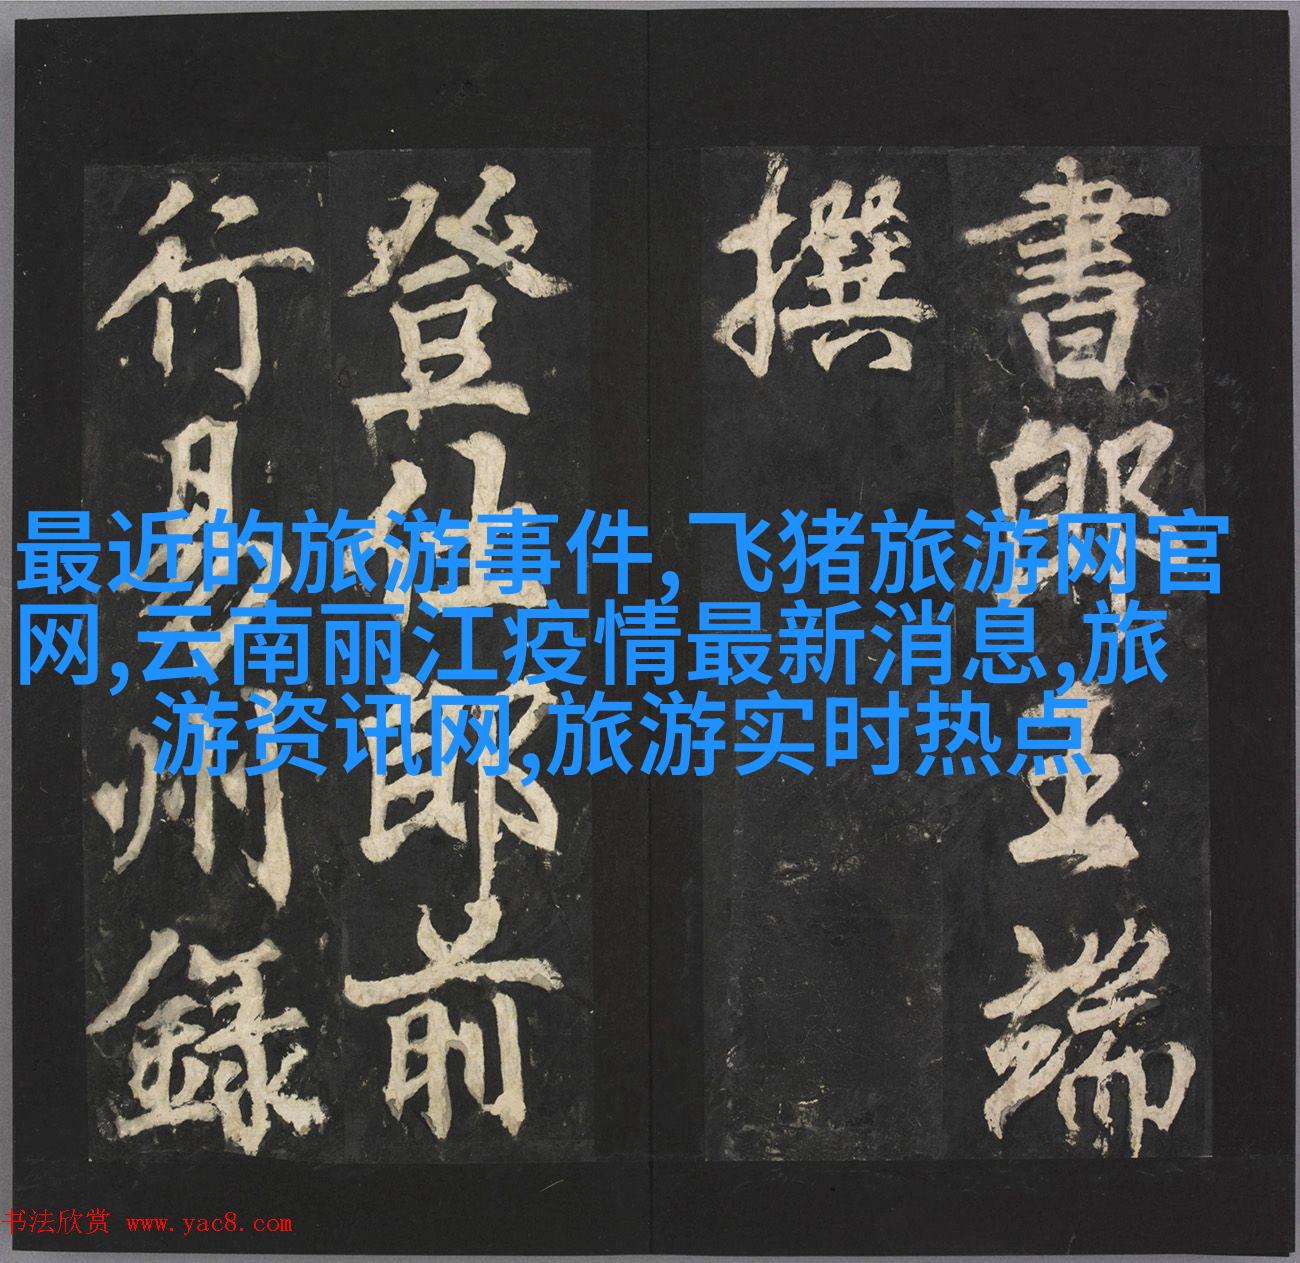 書郎王端
撰
登仕郎前
行易州録
最近的旅游事件,飞猪旅游网官
网,云南丽江疫情最新消息,旅
游资讯网,旅游实时热点
书法欣赏 www.yac8.com